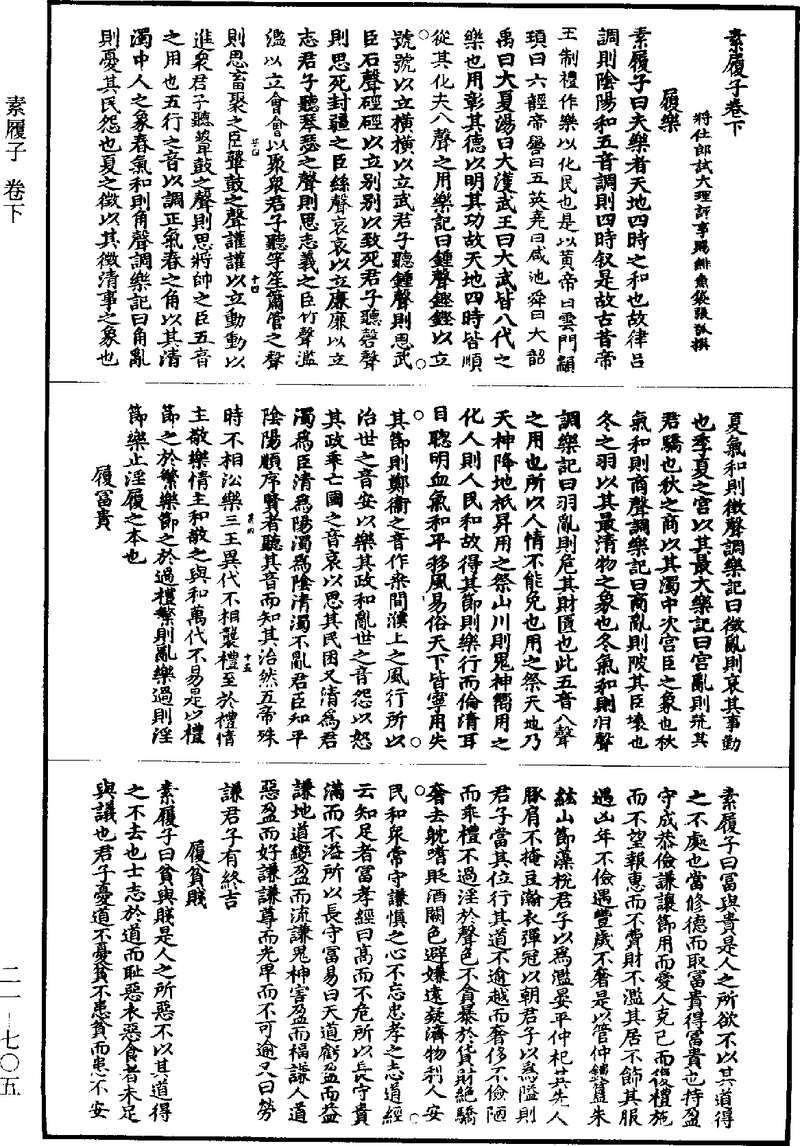 素履子卷下
將仕郎試大理評事賜緋魚袋張弧撰
履樂
素履子曰夫樂者天地四時之和也故律呂
調則陰陽和五音調則四時叙是故古昔帝
王制禮作樂以化民也是以黃帝曰雲門顓
頊曰六莖帝嚳曰五英堯曰咸池舜曰大韶
禹曰大夏湯曰大濩武王曰大武皆八代之
樂也用彰其德以明其功故天地四時皆順
從其化夫八聲之用樂記曰鍾聲鏗鏗以立
號號以立橫橫以立武君子聽鍾聲則思武
臣石聲硜硜以立别别以致死君子聽磬聲
則思死封疆之臣絲聲哀哀以立廉廉以立
志君子聽琴瑟之聲則思志義之臣竹聲濫
濫以立會會以聚衆君子聽竽笙簫管之聲
則思畜聚之臣鼙鼓之聲讙讙以立動動以
進衆君子聽鼙鼓之聲則思將帥之臣五音
之用也五行之音以調正氣春之角以其清
濁中人之象春氣和則角聲調樂記曰角亂
則憂其民怨也夏之徵以其徵清事之象也
夏氣和則徵聲調樂記曰徵亂則哀其事勤
也季夏之宫以其最大樂記曰宫亂則荒其
君驕也秋之商以其濁中次宫臣之象也秋
氣和則商聲調樂記曰商亂則陂其臣壞也
冬之羽以其最清物之象也冬氣和則羽聲
調樂記曰羽亂則危其財匱也此五音八聲
之用也所以人情不能免也用之祭天地乃
天神降地祇昇用之祭山川則鬼神嚮用之
化人則人民和故得其節則樂行而倫清耳
目聰明血氣和平移風易俗天下皆寧用失
其節則鄭衛之音作桒間濮上之風行所以
治世之音安以樂其政和亂世之音怨以怒
其政乖亡國之音哀以思其民困又清爲君
濁爲臣清爲陽濁爲陰清濁不亂君臣和平
陰陽順序賢者聽其音而知其治然五帝殊
時不相沿樂三王異代不相襲禮至於禮情
主敬樂情主和敬之與和萬代不易是以禮
節之於繁樂節之於過禮繁則亂樂過則淫
節樂止淫履之本也
履富貴
素履子曰富與貴是人之所欲不以其道得
之不處也當修德而取富貴得富貴也持盈
守成恭儉謙讓節用而愛人克己而復禮施
而不望報惠而不費財不濫其居不節其服
遇凶年不儉遇豐歲不奢是以管仲鏤簋朱
紘山節藻梲君子以為濫晏平仲祀其先人
豚肩不掩豆澣衣彈冠以朝君子以為隘則
君子當其位行其道不逾越而奢侈不儉陋
而乖禮不過淫於聲色不貪暴於貨財絕驕
奢去躭嗜貶酒闕色避嫌遠疑濟物利人安
民和衆常守謙慎之心不忘忠孝之志道經
云知足者富孝經曰髙而不危所以長守貴
滿而不溢所以長守富易曰天道虧盈而益
謙地道變盈而流謙鬼神害盈而福謙人道
惡盈而好謙謙尊而光卑而不可逾又曰勞
謙君子有終吉
履貧賤
素履子曰貧與賤是人之所惡不以其道得
之不去也士志於道而恥惡衣惡食者未足
與議也君子憂道不憂貧不患貧而患不安
素履子 卷下
二一—七〇五